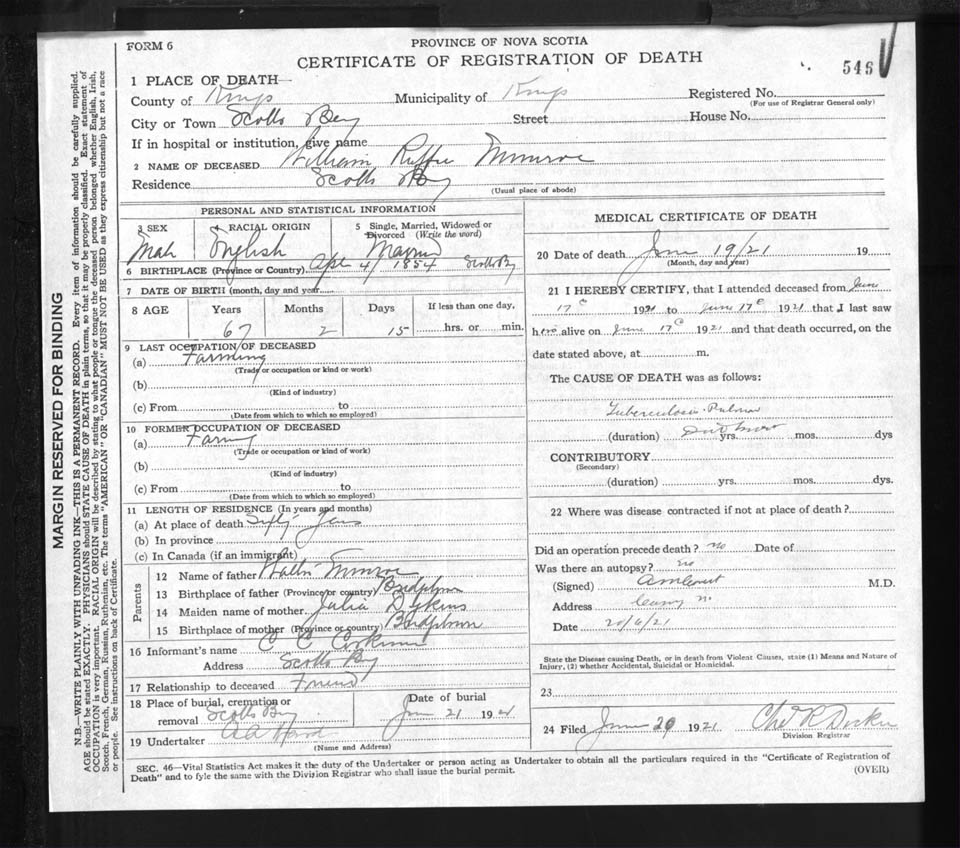 FORM 6
PROVINCE OF NOVA SCOTIA
CERTIFICATE OF REGISTRATION OF DEATH
546
1 PLACE OF DEATH
County of Kings Municipality of Kings Registered No.
(For use of Registrar General only)
City or Town Scotts Bay Street House No.
If in hospital or institution, give name
2 NAME OF DECEASED William Munroe
Residence Scotts Bay
(Usual place of abode)
PERSONAL AND STATISTICAL INFORMATION
3 SEX 4 RACIAL ORIGIN 5 Single, Married, Widowed or Divorced (Write the word)
Male English Married
6 BIRTHPLACE (Province or Country) Apr 4/1854 Scotts Bay
7 DATE OF BIRTH (month, day and year)
8 AGE Years Months Days If less than one day,
67 2 15 hrs. or min.
9 LAST OCCUPATION OF DECEASED
(a) Farming
(Trade or occupation or kind or work)
(b)
(Kind of industry)
(c) From to
(Date from which to which so employed)
10 FORMER OCCUPATION OF DECEASED
(a) Farming
(Trade or occupation or kind of work)
(b)
(Kind of industry)
(c) From to
(Date from which to which so employed)
11 LENGTH OF RESIDENCE (In years and months)
(a) At place of death
(b) In province
(c) In Canada (if an immigrant)
Parents
12 Name of father Munroe
13 Birthplace of father (Province or country)
14 Maiden name of mother Julia Dykens
15 Birthplace of mother (Province or country)
16 Informant's name C C
Address Scotts Bay
17 Relationship to deceased Friend
18 Place of burial, cremation or removal Scotts Bay Date of burial June 21 1921
19 Undertaker
(Name and Address)
MEDICAL CERTIFICATE OF DEATH
20 Date of death June 19/21 19
(Month, day and year)
21 I HEREBY CERTIFY, that I attended deceased from June
17 1921 to June 17 1921 that I last saw
alive on June 17 1921 and that death occurred, on the
date stated above, at m.
The CAUSE OF DEATH was as follows:
Tuberculosis
(duration) yrs. mos. dys
CONTRIBUTORY
(Secondary)
(duration) yrs. mos. dys.
22 Where was disease contracted if not at place of death?
Did an operation precede death? no Date of
Was there an autopsy? no
(Signed) M.D.
Address
Date 20/6/21
State the Disease causing Death, or in death from Violent Causes, state (1) Means and Nature of
Injury, (2) whether Accidental, Suicidal or Homicidal.
23
24 Filed June 20 1921
Division Registrar
SEC. 46—Vital Statistics Act makes it the duty of the Undertaker or person acting as Undertaker to obtain all the particulars required in the "Certificate of Registration of
Death" and to fyle the same with the Division Registrar who shall issue the burial permit.
(OVER)
MARGIN RESERVED FOR BINDING
N.B.—WRITE PLAINLY WITH UNFADING INK—THIS IS A PERMANENT RECORD. Every item of information should be carefully supplied.
AGE should be stated EXACTLY. PHYSICIANS should STATE CAUSE OF DEATH in plain terms, so that it may be properly classified. Exact statement of
OCCUPATION is very important. RACIAL ORIGIN will be described by stating to what people or tongue the deceased person belonged whether English, Irish,
Scotch, French, German, Russian, Ruthenian, etc. The terms "AMERICAN" OR "CANADIAN" MUST NOT BE USED as they express citizenship but not a race
or people. See instructions on back of Certificate.